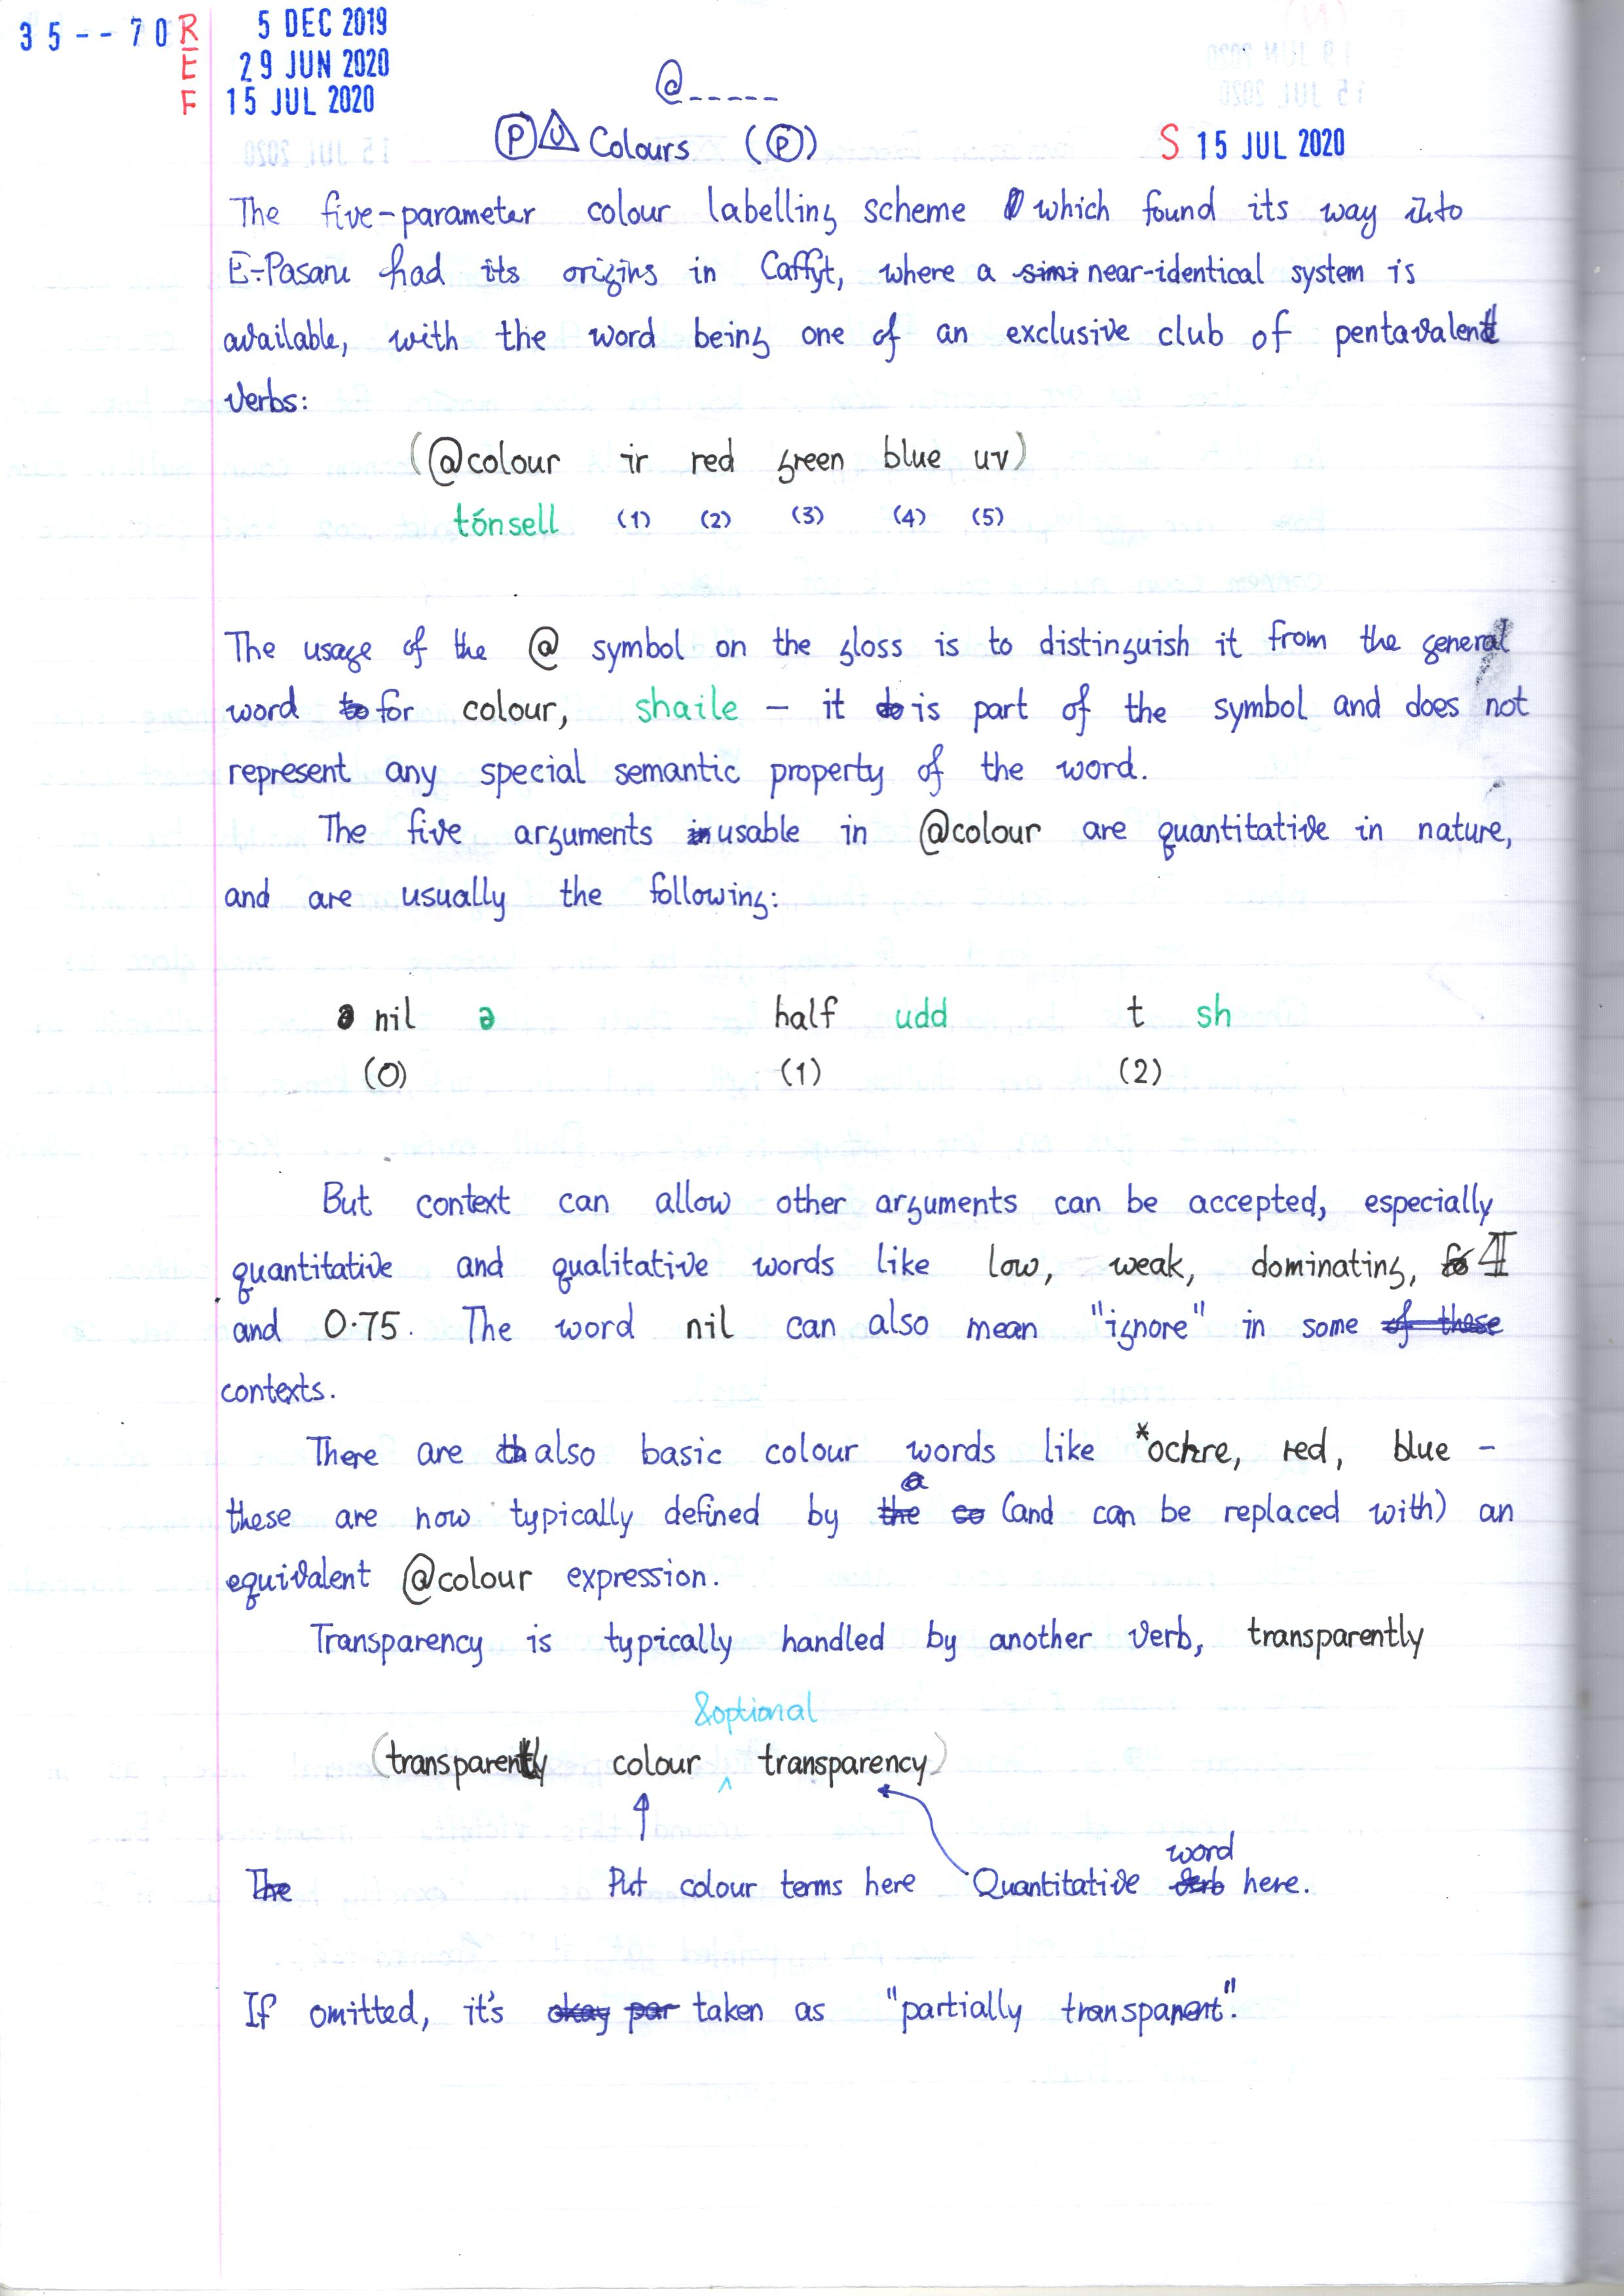 35--70 REF 5 DEC 2019
29 JUN 2020
15 JUL 2020
@-----
P U Colours (P)
S 15 JUL 2020
The five-parameter colour labelling scheme which found its way into
E-Pasanu had its origins in Caffyt, where a simi near-identical system is
available, with the word being one of an exclusive club of pentavalent
verbs:
(@colour ir red green blue uv)
tónsell (1) (2) (3) (4) (5)
The usage of the @ symbol on the gloss is to distinguish it from the general
word to for colour, shaile – it do is part of the symbol and does not
represent any special semantic property of the word.
The five arguments in usable in @colour are quantitative in nature,
and are usually the following:
nil ə half udd t sh
(0) (1) (2)
But context can allow other arguments can be accepted, especially
quantitative and qualitative words like low, weak, dominating, 4
and 0.75. The word nil can also mean "ignore" in some of these
contexts.
There are th also basic colour words like *ochre, red, blue –
a
these are now typically defined by the co (and can be replaced with) an
equivalent @colour expression.
Transparency is typically handled by another verb, transparently
&optional
(transparently colour ^ transparency)
word
The Put colour terms here Quantitative verb here.
If omitted, it's okay par taken as "partially transparent".